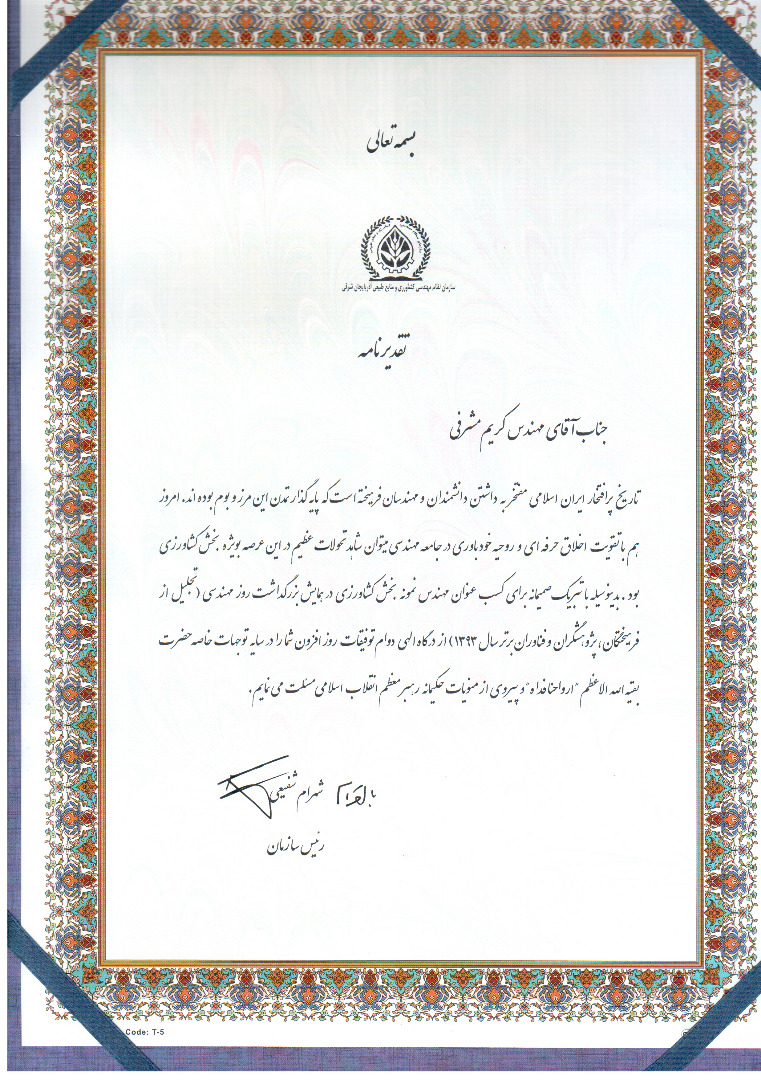 بسمه تعالی
سازمان نظام مهندسی کشاورزی و منابع طبیعی آذربایجان شرقی
تقدیرنامه
جناب آقای مهندس کریم مشرفی
تاریخ پرافتخار ایران اسلامی مفتخر به داشتن دانشمندان و مهندسان فریخته است که پایه گذار تمدن این مرز و بوم بوده اند. امروز
هم با تقویت اخلاق حرفه ای و روحیه خودباوری در جامعه مهندسی میتوان شاهد تحولات عظیم در این عرصه بویژه بخش کشاورزی
بود. بدینوسیله با تبریک صمیمانه برای کسب عنوان مهندس نمونه بخش کشاورزی در همایش بزرگداشت روز مهندسی (تجلیل از
فریختگان، پژوهشگران و فناوران برتر سال ۱۳۹۳) از درگاه الهی دوام توفیقات روز افزون شما را در سایه توجهات خاصه حضرت
بقیه الله الاعظم "ارواحنا فداه" و پیروی از منویات حکیمانه رهبر معظم انقلاب اسلامی مسئلت می نمایم.
با احترام شهرام شفیعی
رئیس سازمان
Code: T-5